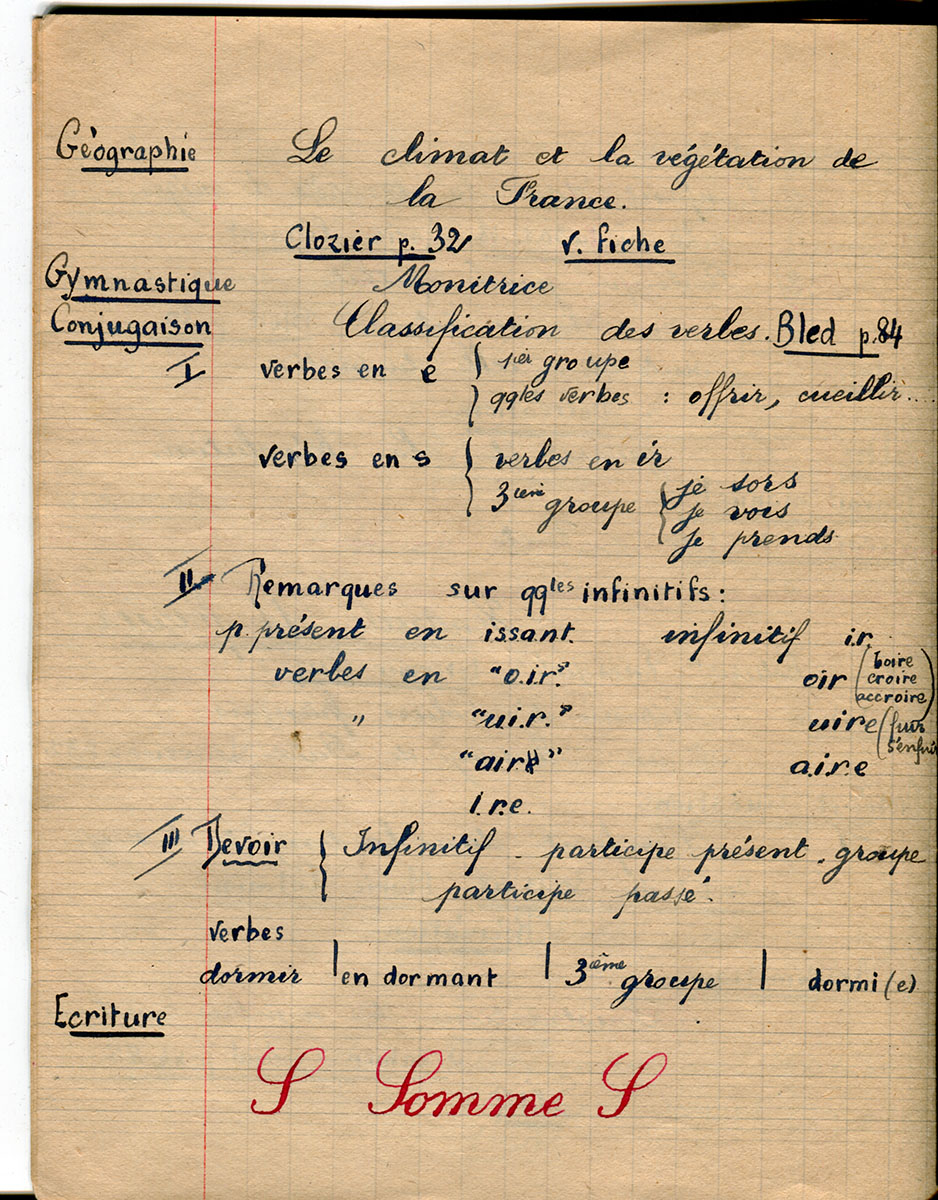 Géographie Le climat et la végétation de
la France.
Clozier p. 32 v. fiche
Gymnastique Monitrice
Conjugaison Classification des verbes. Bled p.84
I verbes en e { 1er groupe
qqles verbes : offrir, cueillir....
verbes en s { verbes en ir
3ième groupe { je sors
je vois
je prends
II Remarques sur qqles infinitifs :
p. présent en issant. infinitif i.r.
verbes en "o.ir." oir (boire
croire
accroire)
" "ui.r." uire (fuir
s'enfuir
"air" a.i.r.e
i.r.e.
III Devoir { Infinitif - participe présent - groupe
participe passé.
verbes
dormir | en dormant | 3ième groupe | dormi(e)
Ecriture
S Somme S